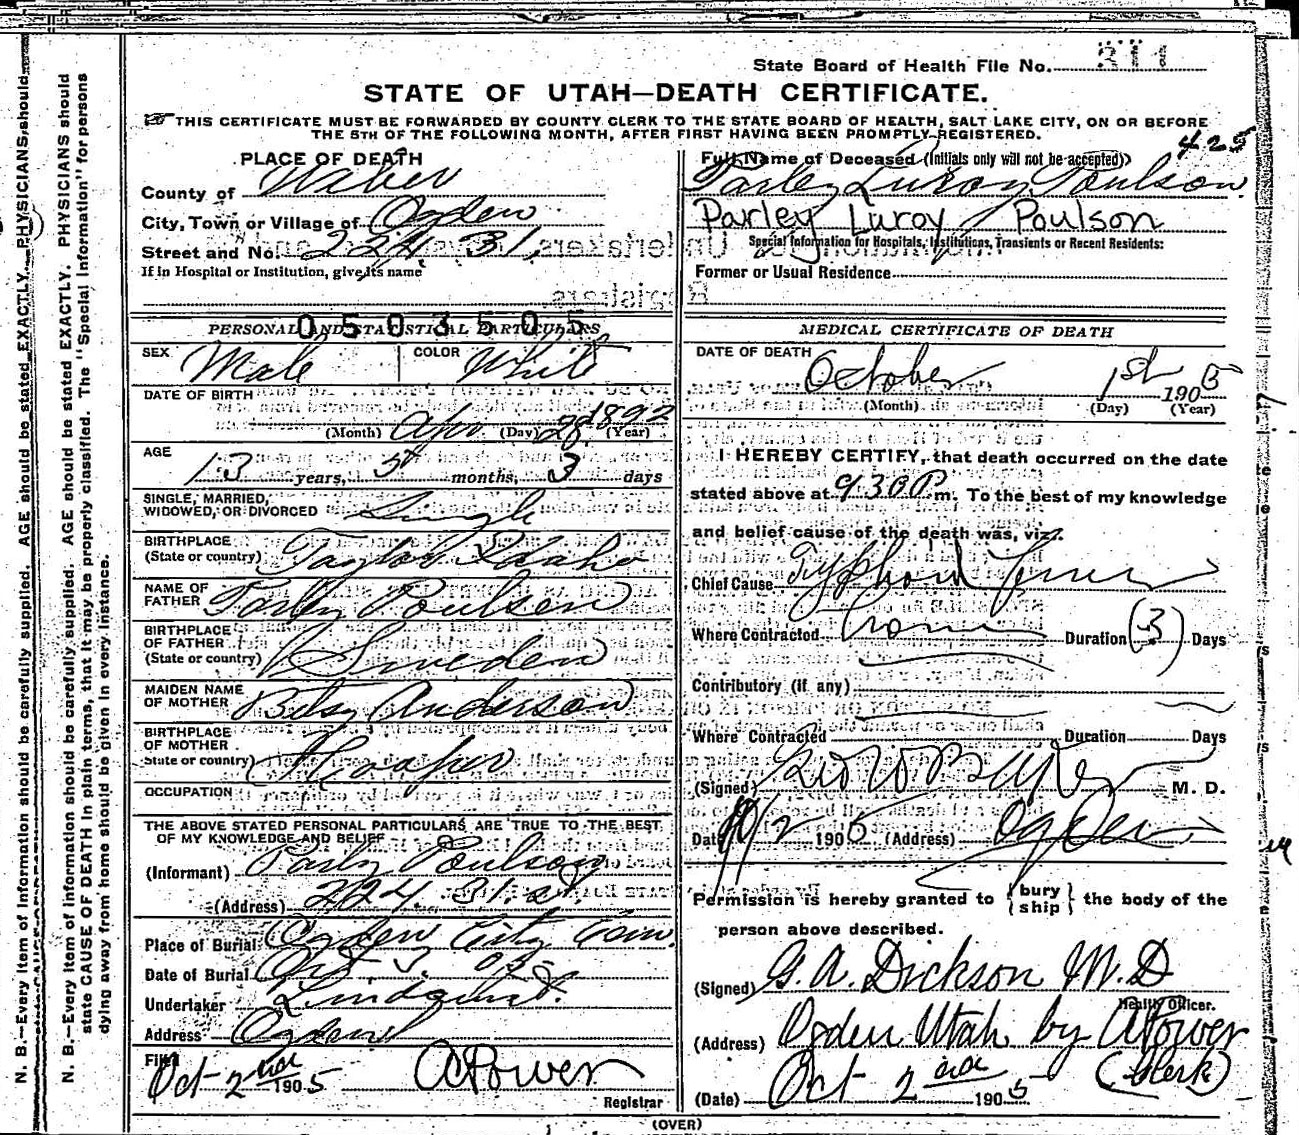 State Board of Health File No. 311
STATE OF UTAH—DEATH CERTIFICATE.
THIS CERTIFICATE MUST BE FORWARDED BY COUNTY CLERK TO THE STATE BOARD OF HEALTH, SALT LAKE CITY, ON OR BEFORE
THE 5TH OF THE FOLLOWING MONTH, AFTER FIRST HAVING BEEN PROMPTLY REGISTERED.
425
PLACE OF DEATH
County of Weber
City, Town or Village of Ogden
Street and No. 224. 31.
If in Hospital or Institution, give its name
Full Name of Deceased (Initials only will not be accepted)
Parley Luroy Poulson
Parley Luroy Poulson
Special Information for Hospitals, Institutions, Transients or Recent Residents:
Former or Usual Residence
0503505
PERSONAL AND STATISTICAL PARTICULARS
SEX Male COLOR White
DATE OF BIRTH
(Month) Apr (Day) 28 1892 (Year)
AGE
13 years, 5 months, 3 days
SINGLE, MARRIED,
WIDOWED, OR DIVORCED Single
BIRTHPLACE
(State or country) Taylor Idaho
NAME OF
FATHER Parley Poulsen
BIRTHPLACE
OF FATHER
(State or country) Sweden
MAIDEN NAME
OF MOTHER Betsy Anderson
BIRTHPLACE
OF MOTHER
State or country) Hooper
OCCUPATION
THE ABOVE STATED PERSONAL PARTICULARS ARE TRUE TO THE BEST
OF MY KNOWLEDGE AND BELIEF
(Informant) Parly Poulson
(Address) 224. 31. st.
Place of Burial Ogden City Cem.
Date of Burial Oct 3. 05
Undertaker Lindquist.
Address Ogden
Filed Oct 2nd 1905 APower
Registrar
MEDICAL CERTIFICATE OF DEATH
DATE OF DEATH
October 1st 1905
(Month) (Day) (Year)
I HEREBY CERTIFY, that death occurred on the date
stated above at 930 P m. To the best of my knowledge
and belief cause of the death was, viz:
Chief Cause Typhoid Fever
Where Contracted Duration (3) Days
Contributory (if any)
Where Contracted Duration Days
(Signed) M. D.
Date 10/2 1905 (Address) Ogden
Permission is hereby granted to { bury
ship } the body of the
person above described.
(Signed) G. A. Dickson M.D
Health Officer.
(Address) Ogden Utah by APower
(Clerk)
(Date) Oct 2nd 1905
(OVER)
N. B.—Every item of information should be carefully supplied. AGE should be stated EXACTLY. PHYSICIANS should
N. B.—Every item of information should be carefully supplied. AGE should be stated EXACTLY. PHYSICIANS should
state CAUSE OF DEATH in plain terms, that it may be properly classified. The "Special Information" for persons
dying away from home should be given in every instance.